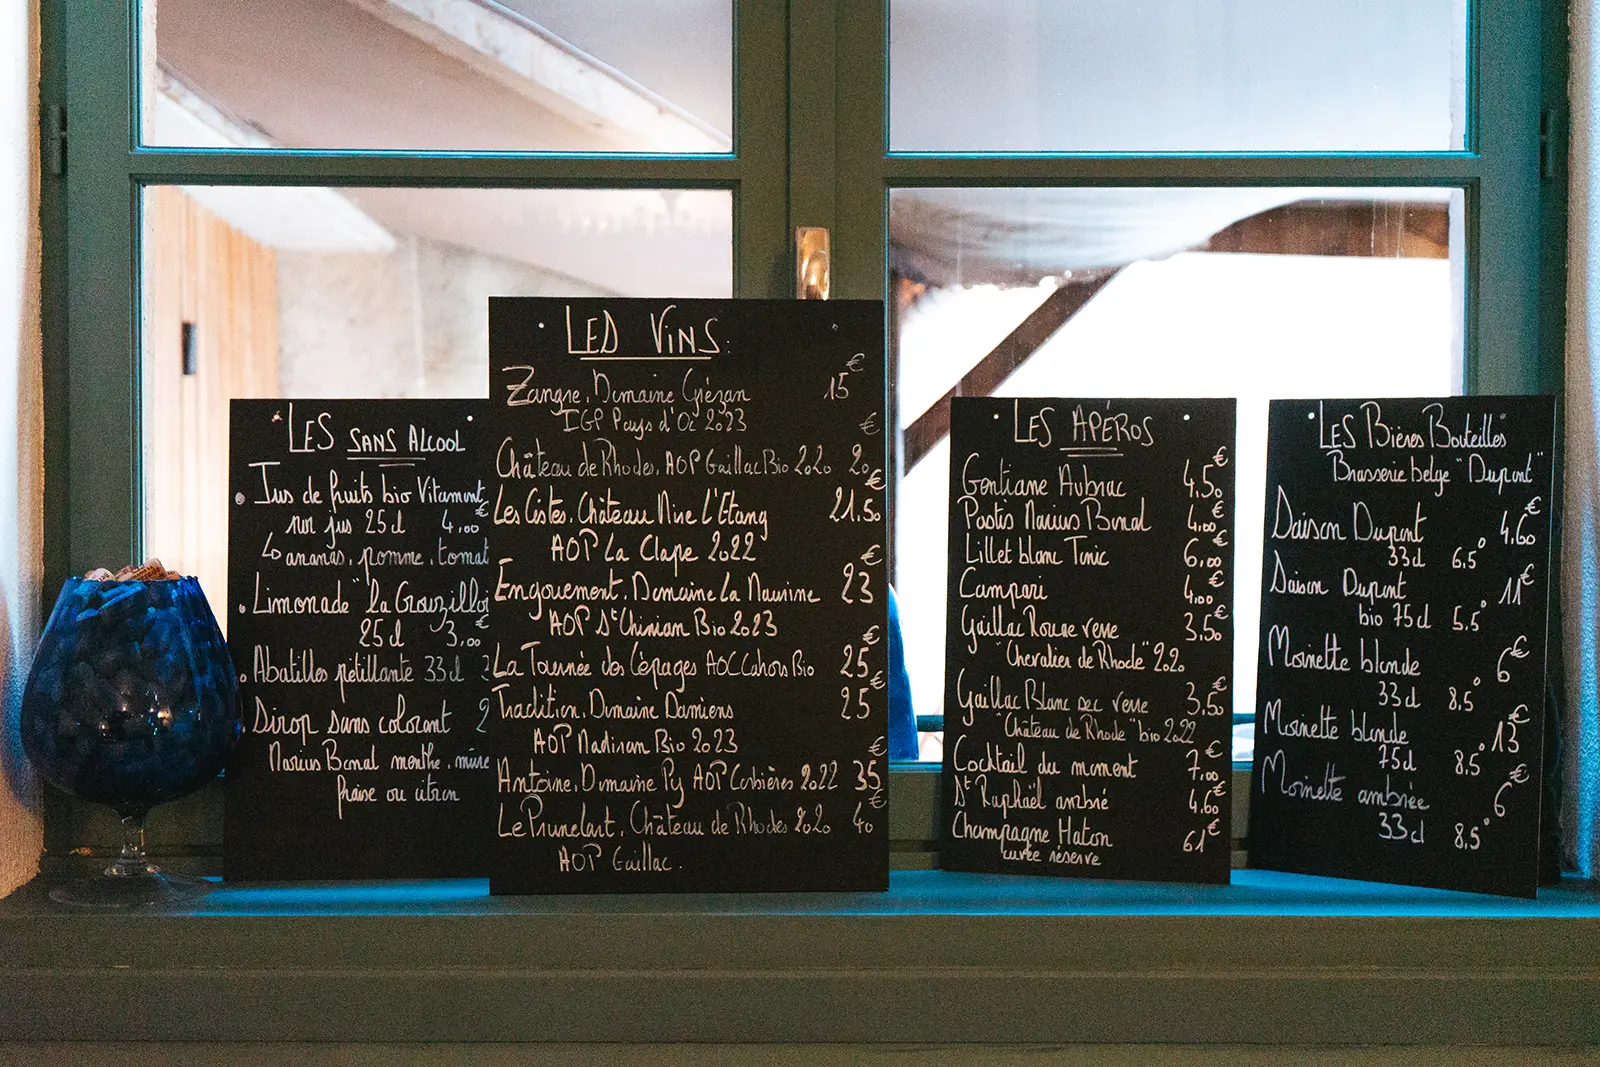 LES SANS ALCOOL
Jus de fruits bio Vitamont
pur jus 25cl 4,00€
ananas, pomme, tomat
Limonade "la Gouzillo
25cl 3,00€
Abatilles pétillante 33cl
Sirop sans colorant 2
Marius Bonal menthe, mûre
fraise ou citron
LES VINS:
Zangre, Domaine Grézan 15€
IGP Pays d'Oc 2023
Château de Rhodes, AOP Gaillac Bio 2020 20€
Les Cistes, Château Mire L'Etang 21.50€
AOP La Clape 2022
Engouement, Domaine La Maurine 23€
AOP St Chinian Bio 2023
La Tournée des Cépages AOC Cahors Bio 25€
Tradition, Domaine Damiens 25€
AOP Madiran Bio 2023
Antoine, Domaine Py AOP Corbières 2022 35€
Le Prunelart, Château de Rhodes 2020 40€
AOP Gaillac.
LES APÉROS
Gentiane Aubrac 4,50€
Pastis Marius Bonal 4,00€
Lillet blanc Tonic 6,00€
Campari 4,00€
Gaillac Rouge verre 3,50€
"Chevalier de Rhode" 2020
Gaillac Blanc sec verre 3,50€
"Château de Rhode" bio 2022
Cocktail du moment 7,00€
St Raphaël ambré 4,60€
Champagne Haton 61€
cuvée réserve
LES Bières Bouteilles
Brasserie belge "Dupont"
Saison Dupont 4,60€
33cl 6,5°
Saison Dupont 11€
bio 75cl 5.5°
Moinette blonde 6€
33cl 8,5°
Moinette blonde 13€
75cl 8,5°
Moinette ambrée 6€
33cl 8,5°